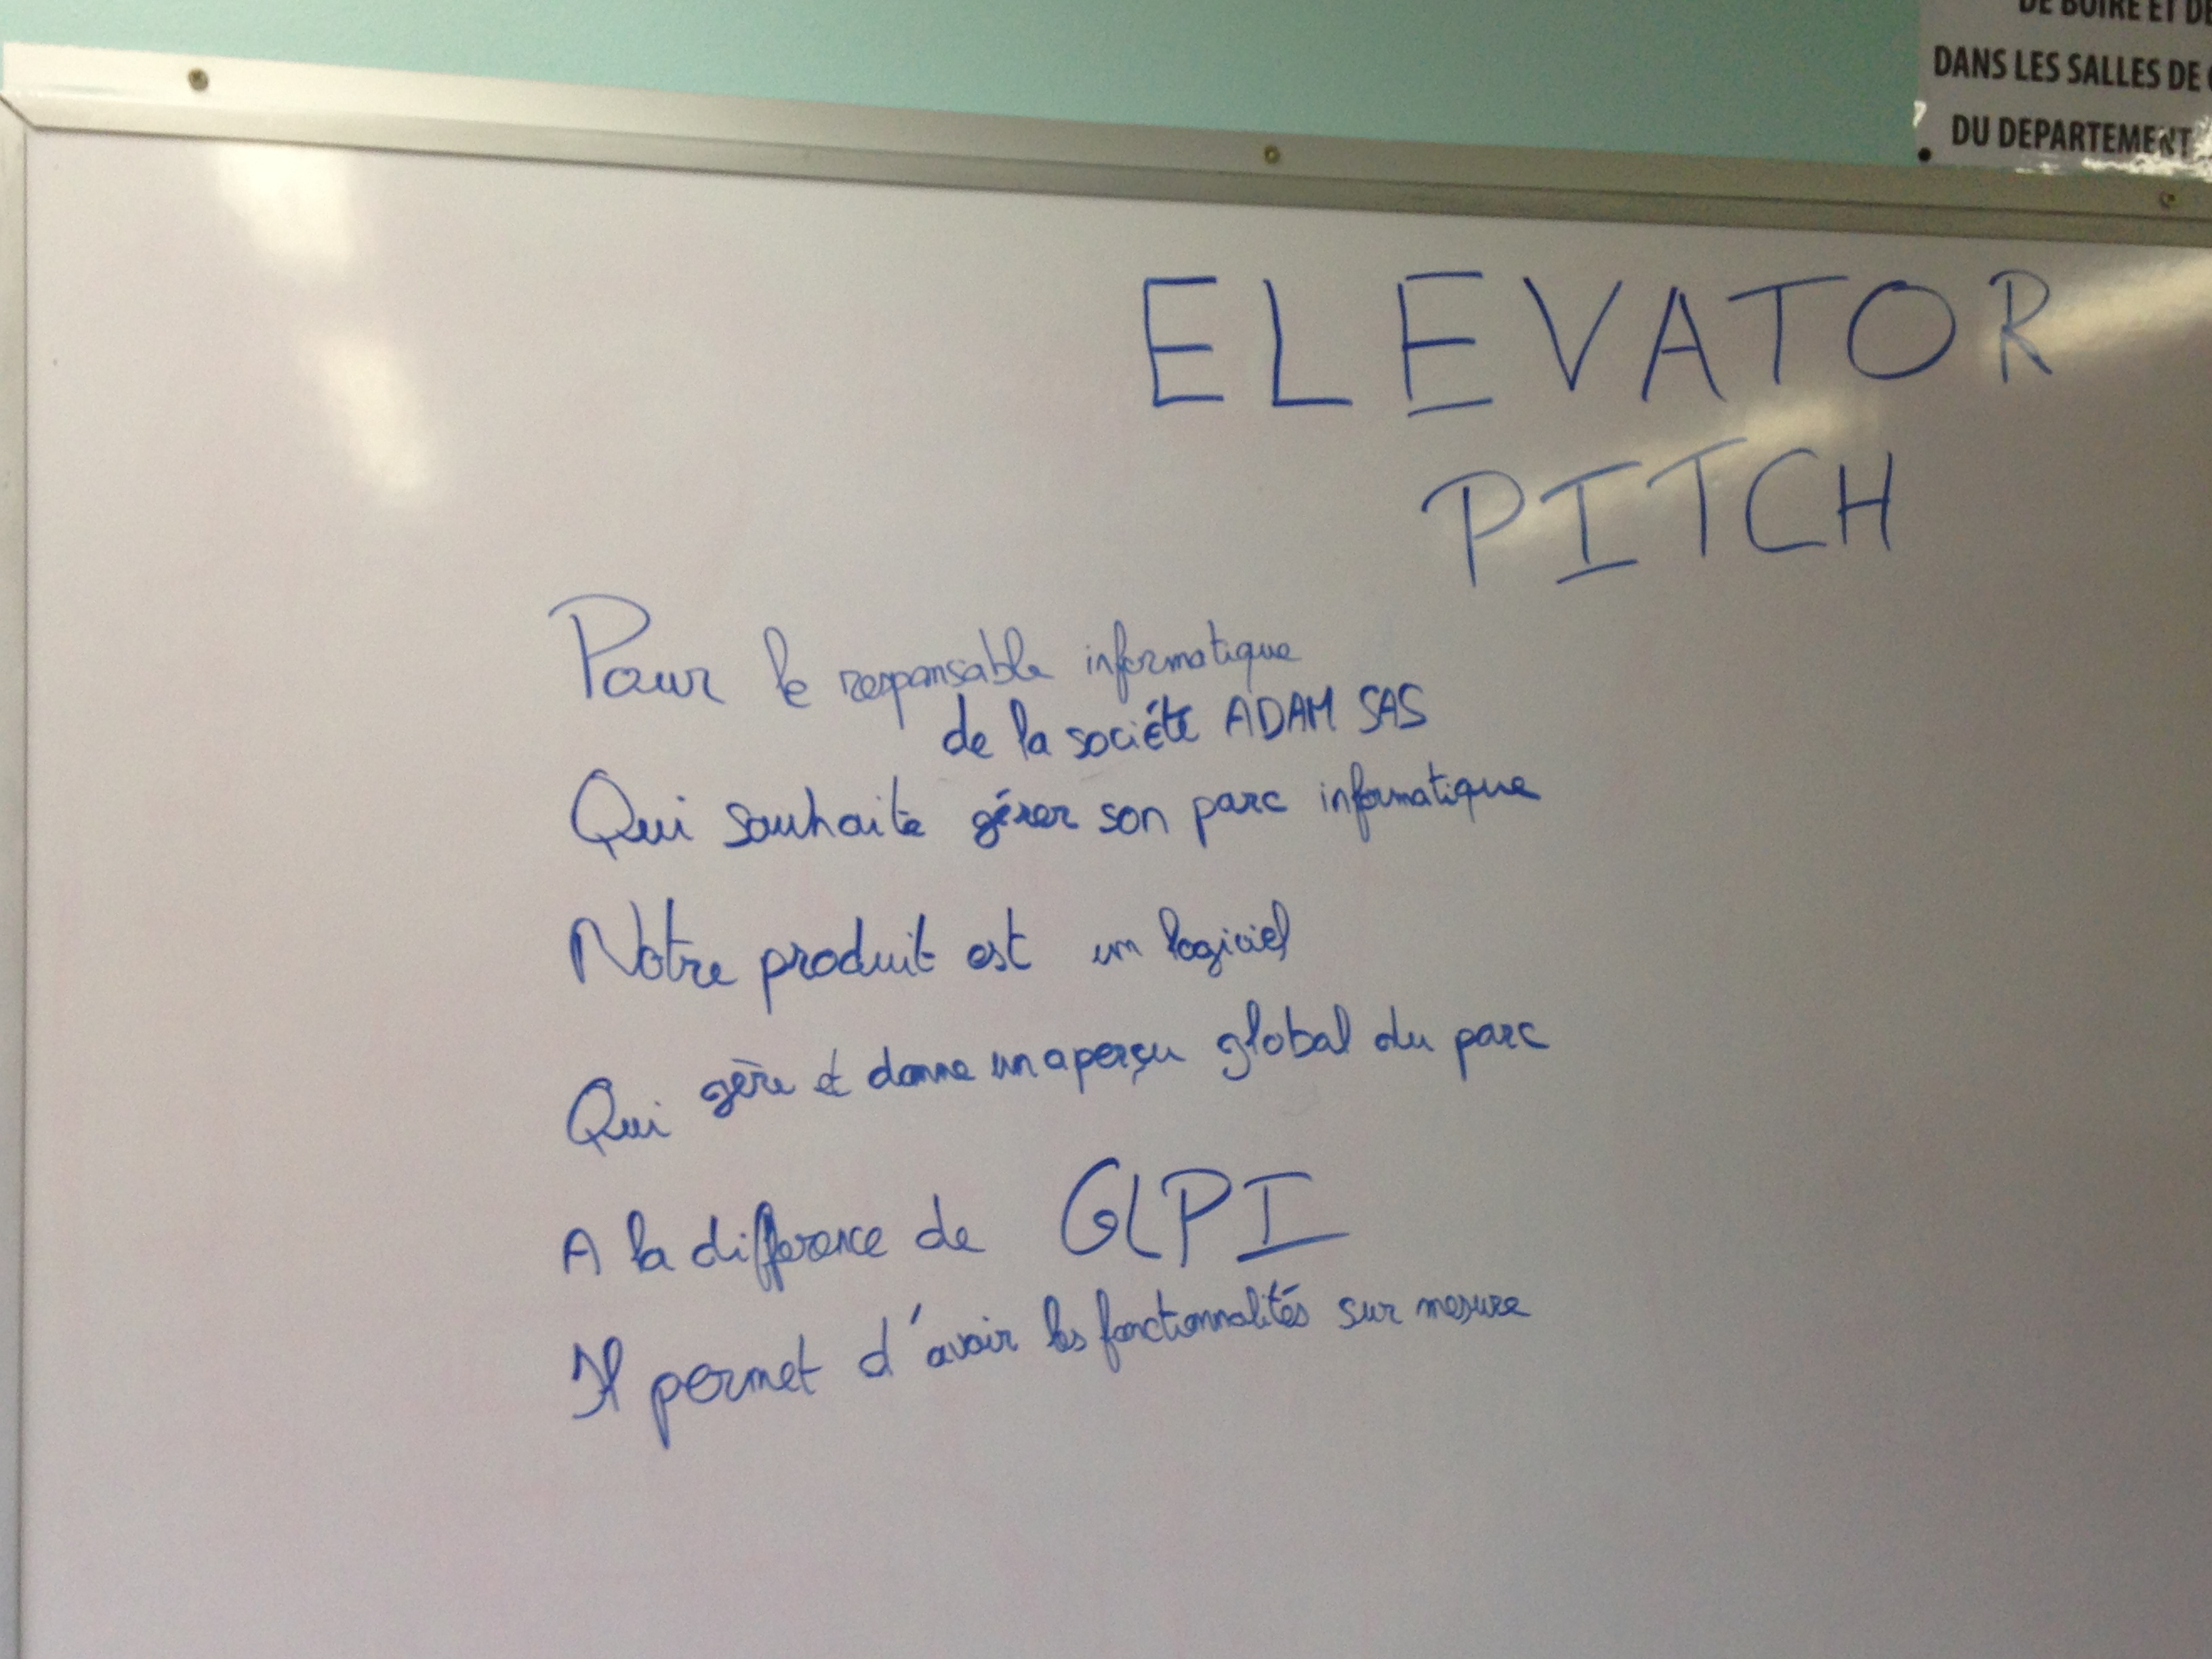 DE BOIRE ET DE
DANS LES SALLES DE
DU DEPARTEMENT
ELEVATOR
PITCH
Pour le responsable informatique
de la société ADAM SAS
Qui souhaite gérer son parc informatique
Notre produit est un logiciel
Qui gère et donne un aperçu global du parc
A la difference de GLPI
Il permet d'avoir les fonctionnalités sur mesure